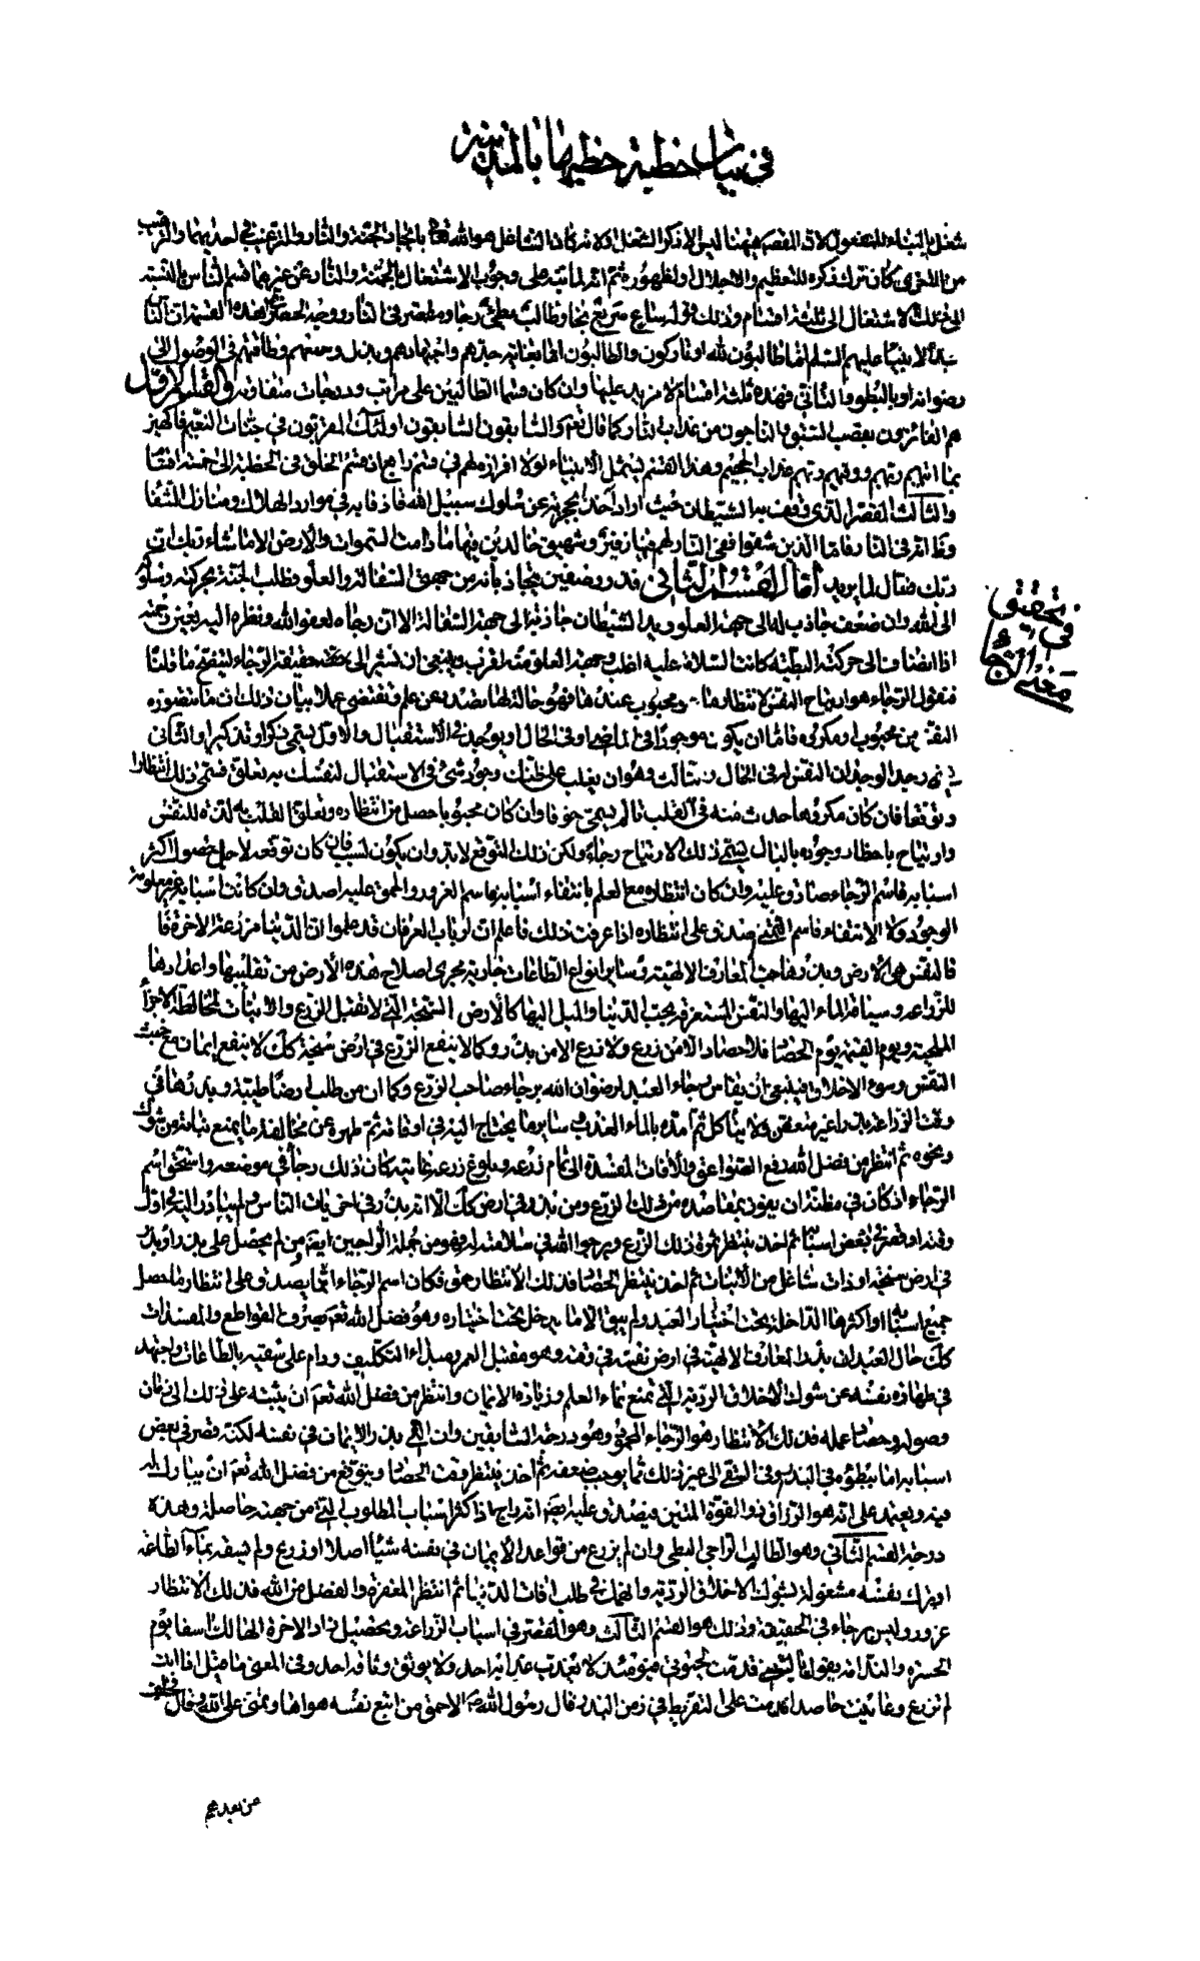 في بيان خطبة خطبها بالمدينة
شغل بالبناء للمفعول لان القصد هيهنا ليس الا ذكر الشغل ولانه كان الشاغل هو الله تعالى بايجاد الجنة والنار والترغيب في احديهما والترهيب
من الاخرى كان ترك ذكره للتعظيم والاجلال او لظهوره ثم انه لما نبه على وجوب الاشتغال بالجنة والنار عن غيرهما قسم الناس بالنسبة
الى ذلك الاشتغال الى ثلثة اقسام وذلك قوله ساع سريع نجا وطالب بطىء رجا ومقصر في النار ووجه الحصر في هذه القسمة ان الناس
بعد الانبياء عليهم السلم اما طالبون لله او تاركون والطالبون اما بغاية جدهم واجتهادهم وبذل وسعهم وطاقتهم في الوصول الى
رضوانه او بالبطوء والتأنى فهذه ثلثة اقسام لا مزيد عليها وان كان قسما الطالبين على مراتب ودرجات متفاوتة والقسم الاول
هم الفائزون بقصب السبق والناجون من عذاب النار كما قال تعالى والسابقون السابقون اولئك المقربون في جنات النعيم فاكهين
بما اتيهم ربهم ووقيهم ربهم عذاب الجحيم وهذا القسم يشمل الانبياء لولا افرازه لهم في قسم رابع اذ قسم الخلق في الخطبة الى خمسة اقسام
والثالث المقصر الذى وقف به الشيطان حيث اراد آخذا بحجزته عن سلوك سبيل الله قاذفا به في موارد الهلاك ومنازل الشقاء
وظاهر انه في النار فاما الذين شقوا ففي النار لهم فيها زفير وشهيق خالدين فيها ما دامت السموات والارض الا ما شاء ربك ان
ربك فعال لما يريد اما القسم الثاني فذو وصفين يتجاذبانه من جهتى السفالة والعلو فطلب الجنة بحركته وسلوكه
الى الله وان ضعف جاذب له الى جهة العلو ويد الشيطان جاذبة الى جهة السفالة الا ان رجاه لعفو الله ونظره اليه بعين رحمته
اذا انضاف الى حركته البطيئة كانت السلامة عليه اغلب وجهة العلو منه اقرب وينبغى ان نشير الى حقيقة الرجاء ليتضح ما قلنا
فنقول الرجاء هو ارتياح النفس لانتظار ما هو محبوب عندها فهو حالة لها تصدر عن علم وتقتضي عملا بيان ذلك ان ما تتصوره
النفس من محبوب او مكروه فاما ان يكون موجودا في الماضى او في الحال او يوجد في الاستقبال والاول يسمى ذكرا وتذكيرا والثانى
يسمى وجدا لوجدان النفس له في الحال والثالث وهو ان يغلب على ظنك وجود شيء في الاستقبال لنفسك به تعلق فسمى ذلك انتظارا
وتوقعا فان كان مكروها حدث منه في القلب تألم يسمى خوفا وان كان محبوبا حصل من انتظاره وتعلق القلب به لذة للنفس
وارتياح باخطار وجوده بالبال يسمى ذلك الارتياح رجاء ولكن ذلك التوقع لا بد وان يكون لسبب فان كان توقعه لاجل حصول اكثر
اسبابه فاسم الرجاء صادق عليه وان كان انتظاره مع العلم بانتفاء اسبابه فاسم الغرور والحمق عليه اصدق وان كانت اسبابه غير معلومة
الوجود ولا الانتفاء فاسم التمنى صدق على انتظاره اذا عرفت ذلك فاعلم ان ارباب العرفان قد علموا ان الدنيا مزرعة الاخرة
فالنفس هي الارض وبذرها حب المعارف الالهية وساير انواع الطاعات جارية مجرى اصلاح هذه الارض من تقليبها واعدادها
للزراعة وسياقة الماء اليها والنفس المستغرقة بحب الدنيا والميل اليها كالارض السبخة التي لا تقبل الزرع والانبات لمخالطة الاجزاء
الملحية ويوم القيمة يوم الحصاد ولا حصاد الا من زرع ولا زرع الا من بذر وكما لا ينفع الزرع في ارض سبخة كك لا ينفع ايمان مع خبث
النفس وسوء الاخلاق فينبغى ان يقاس رجاء العبد لرضوان الله برجاء صاحب الزرع وكما ان من طلب ارضا طيبة وبذرها في
وقت الزراعة بذرا غير متعفن ولا متأكل ثم امده بالماء العذب وساير ما يحتاج اليه في اوقاته ثم طهره عن مخالفة ما يمنع نباته من شوك
ونحوه ثم انتظر من فضل الله دفع الصواعق والافات المفسدة الى تمام زرعه وبلوغ زرعه غايته كان ذلك رجاء في موضعه واستحق اسم
الرجاء اذ كان في مظنة ان يفوز بمقاصده من ذلك الزرع ومن بذر في ارض كك الا انه بذر في اخريات الناس ولم يبادر اليه في اول
وقته او قصر في بعض اسبابه ثم اخذ ينتظر ثمرة ذلك الزرع ويرجو الله في سلامته له فهو من جملة الراجين ايضا ومن لم يحصل على بذر او بذر
في ارض سبخة او ذات شاغل من الانبات ثم اخذ ينتظر الحصاد فذلك الانتظار حمق فكان اسم الرجاء انما يصدق على انتظار ما حصل
جميع اسبابه او اكثرها الداخلة تحت اختيار العبد ولم يبق الا ما لا يدخل تحت اختياره وهو فضل الله تعالى بصرف القواطع والمفسدات
كك حال العبد ان بذر المعارف الالهية في ارض نفسه في وقته وهو مقتبل العمر ومبداء التكليف ودام على سقيه بالطاعات واجتهد
في طهارة نفسه عن شوك الاخلاق الردية التي تمنع نماء العلم وزيادة الايمان وانتظر من فضل الله تعالى ان يثبته على ذلك الى زمان
وصوله وحصاد عمله فذلك الانتظار هو الرجاء المحمود وهو درجة السابقين وان القى بذر الايمان في نفسه لكنه قصر في بعض
اسبابه اما ببطؤه في البذر وفي السقى الى غير ذلك مما يوجب ضعفه ثم اخذ ينتظر وقت الحصاد ويتوقع من فضل الله تعالى ان يبارك له
فيه ويعتمد على انه هو الرزاق ذو القوة المتين فيصدق عليه ايضا انه راج اذ اكثر اسباب المطلوب التي من جهته حاصلة وهذه
درجة القسم الثانى وهو الطالب الراجى البطى وان لم يزرع من قواعد الايمان في نفسه شيئا اصلا او زرع ولم يسقه بماء الطاعة
او ترك نفسه مشغولة بشوك الاخلاق الردية وانهمك في طلب افات الدنيا ثم انتظر المغفرة والفضل من الله فذلك الانتظار
غرور وليس برجاء في الحقيقة وذلك هو القسم الثالث وهو المقصر في اسباب الزراعة وتحصيل زاد الاخرة الهالك اسفا يوم
الحسرة والندامة يقول يا ليتنى قدمت لحيوتى فيومئذ لا يعذب عذابه احد ولا يوثق وثاقه احد وفي المعنى ما قيل اذا انت
لم تزرع وعاينت حاصدا ندمت على التفريط في زمن البذر قال رسول الله ص الاحمق من اتبع نفسه هواها وتمنى على الله وقال تعالى فخلف
من بعدهم
في تحقيق
معنى الرجاء